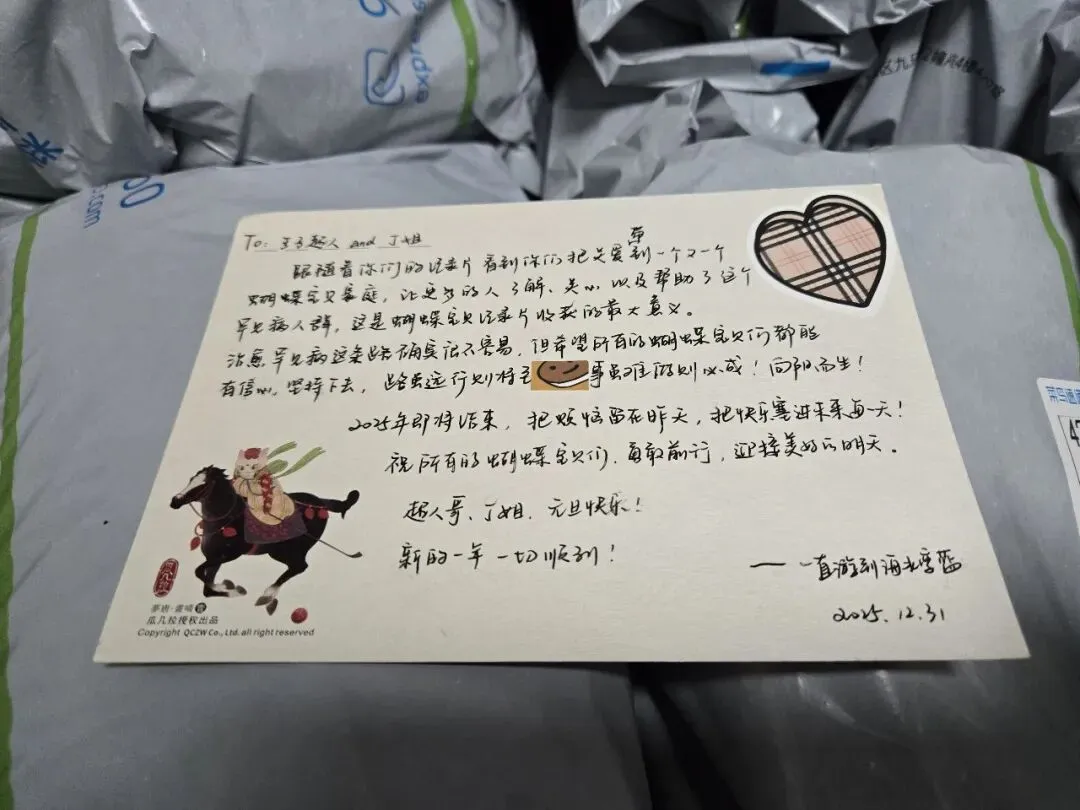 To: 王子超人 and 丁姐
跟随着你们的记录片看到你们把关爱带到一个又一个
蝴蝶宝贝家庭，让更多的人了解、关心以及帮助了这个
罕见病人群，这是蝴蝶宝贝记录片收获的最大意义。
治愈罕见病这条路确实很不容易，但希望所有的蝴蝶宝贝们都能
有信心，坚持下去，路虽远行则将至 事虽难做则必成！向阳而生！
2025年即将结束，把烦恼留在昨天，把快乐塞进未来每一天！
祝所有的蝴蝶宝贝们，勇敢前行，迎接美好的明天。
超人哥、丁姐，元旦快乐！
新的一年一切顺利！
—— 一直游到海水变蓝
2025.12.31
夢唐·畫喵
瓜几拉授权出品
Copyright QCZW Co., Ltd. all right reserved
.com